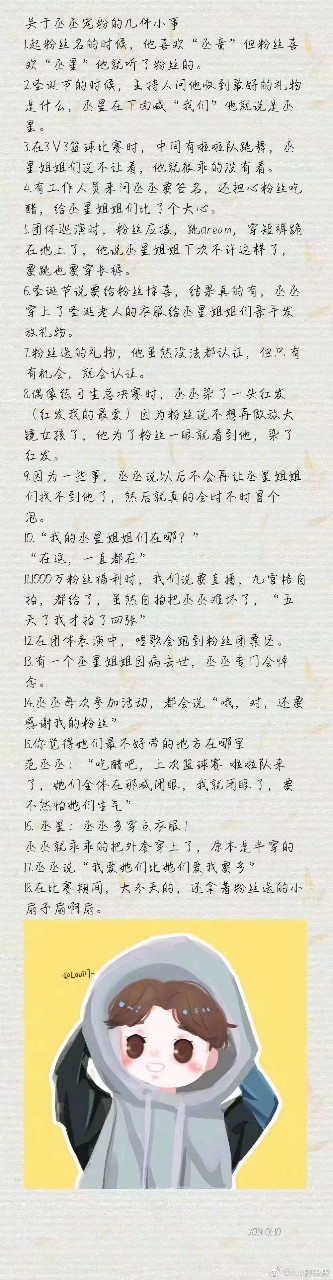 关于丞丞宠粉的几件小事
1.起粉丝名的时候，他喜欢“丞妾”但粉丝喜
欢“丞星”他就听了粉丝的。
2.圣诞节的时候，主持人问他收到最好的礼物
是什么，丞星在下面喊“我们”他就说是丞
星。
3.在3V3篮球比赛时，中间有啦啦队跳舞，丞
星姐姐们说不让看，他就很乖的没有看。
4.有工作人员来问丞丞要签名，还担心粉丝吃
醋，给丞星姐姐们比了个大心。
5.团体巡演时，粉丝应援，跳dream，穿短裤跪
在地上了，他说丞星姐姐下次不许这样了，
要跳也要穿长裤。
6.圣诞节说要给粉丝惊喜，结果真的有，丞丞
穿上了圣诞老人的衣服给丞星姐姐们亲手发
放礼物。
7.粉丝送的礼物，他虽然没法都认证，但只有
有机会，就会认证。
8.偶像练习生总决赛时，丞丞染了一头红发
（红发我的最爱）因为粉丝说不想再做放大
镜女孩了，他为了粉丝一眼就看到他，染了
红发。
9.因为一些事，丞丞说以后不会再让丞星姐姐
们找不到他了，然后就真的会时不时冒个
泡。
10.“我的丞星姐姐们在哪？”
“在这，一直都在”
11.1000万粉丝福利时，我们说要直播，九宫格自
拍，都给了，虽然自拍把丞丞难坏了，“五
天了我才拍了四张”
12.在团体表演中，唱歌会跑到粉丝团票区。
13.有一个丞星姐姐因病去世，丞丞专门会悼
念。
14.丞丞每次参加活动，都会说“哦，对，还要
感谢我的粉丝”
15.你觉得她们最不好带的地方在哪里
范丞丞：“吃醋吧，上次篮球赛 啦啦队来
了，她们全体在那喊闭眼，我就闭眼了，要
不然怕她们生气”
16. 丞星：丞丞多穿点衣服！
丞丞就乖乖的把外套穿上了，原本是半穿的
17.丞丞说“我爱她们比她们爱我要多”
18.在比赛期间，大冬天的，还拿着粉丝送的小
扇子扇啊扇。